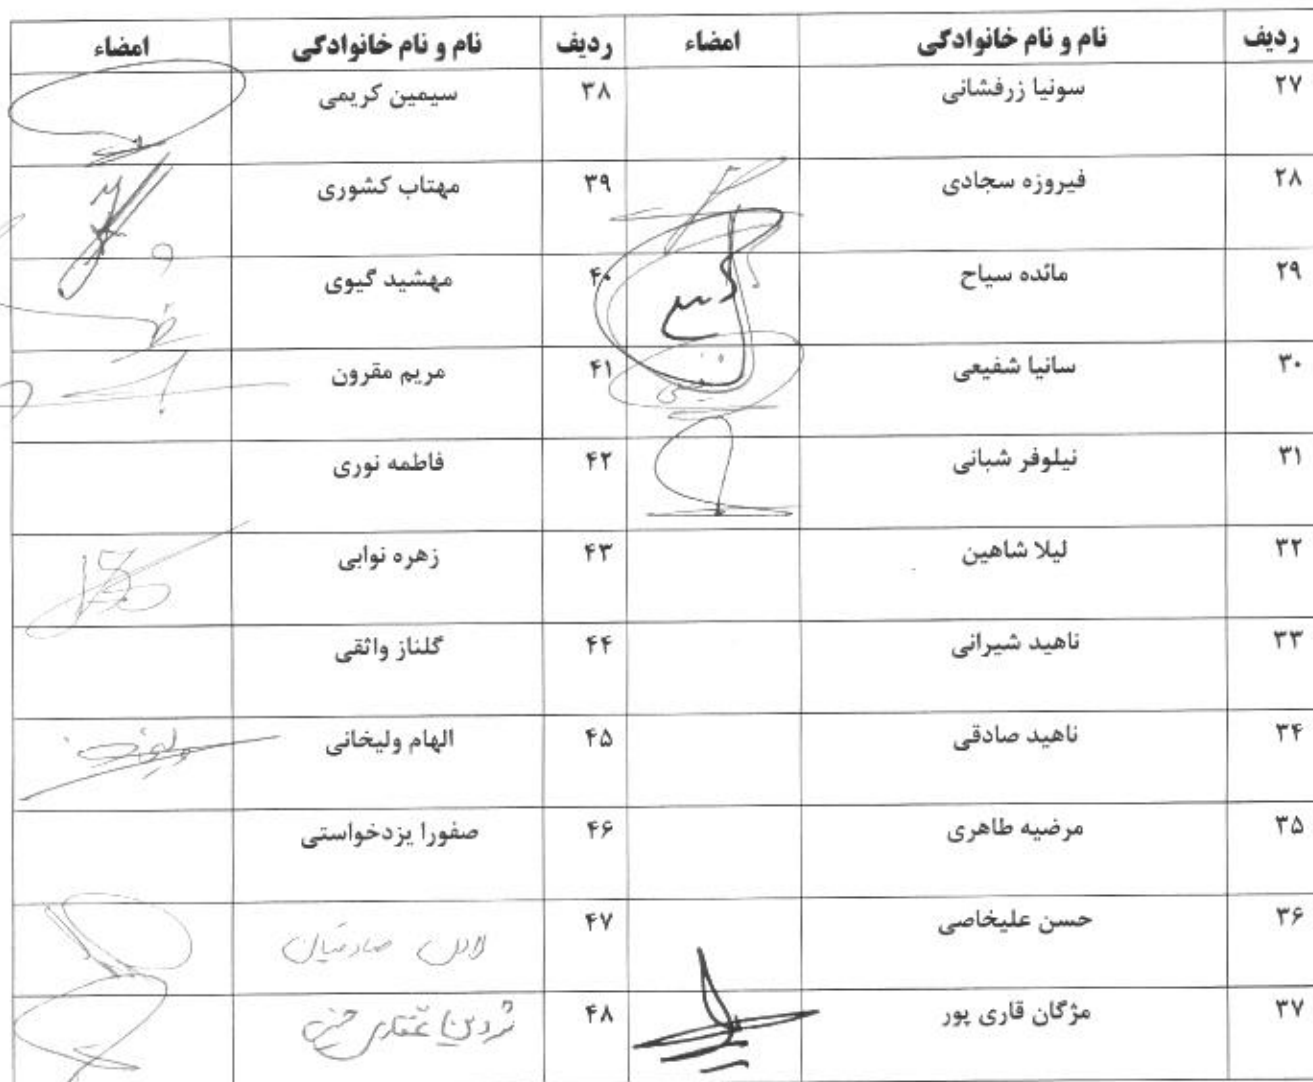 ردیف نام و نام خانوادگی امضاء ردیف نام و نام خانوادگی امضاء
۲۷ سونیا زرفشانی ۳۸ سیمین کریمی
۲۸ فیروزه سجادی ۳۹ مهتاب کشوری
۲۹ مائده سیاح ۴۰ مهشید گیوی
۳۰ سانیا شفیعی ۴۱ مریم مقرون
۳۱ نیلوفر شبانی ۴۲ فاطمه نوری
۳۲ لیلا شاهین ۴۳ زهره نوابی
۳۳ ناهید شیرانی ۴۴ گلناز واثقی
۳۴ ناهید صادقی ۴۵ الهام ولیخانی
۳۵ مرضیه طاهری ۴۶ صفورا یزدخواستی
۳۶ حسن علیخاصی ۴۷
۳۷ مژگان قاری پور ۴۸